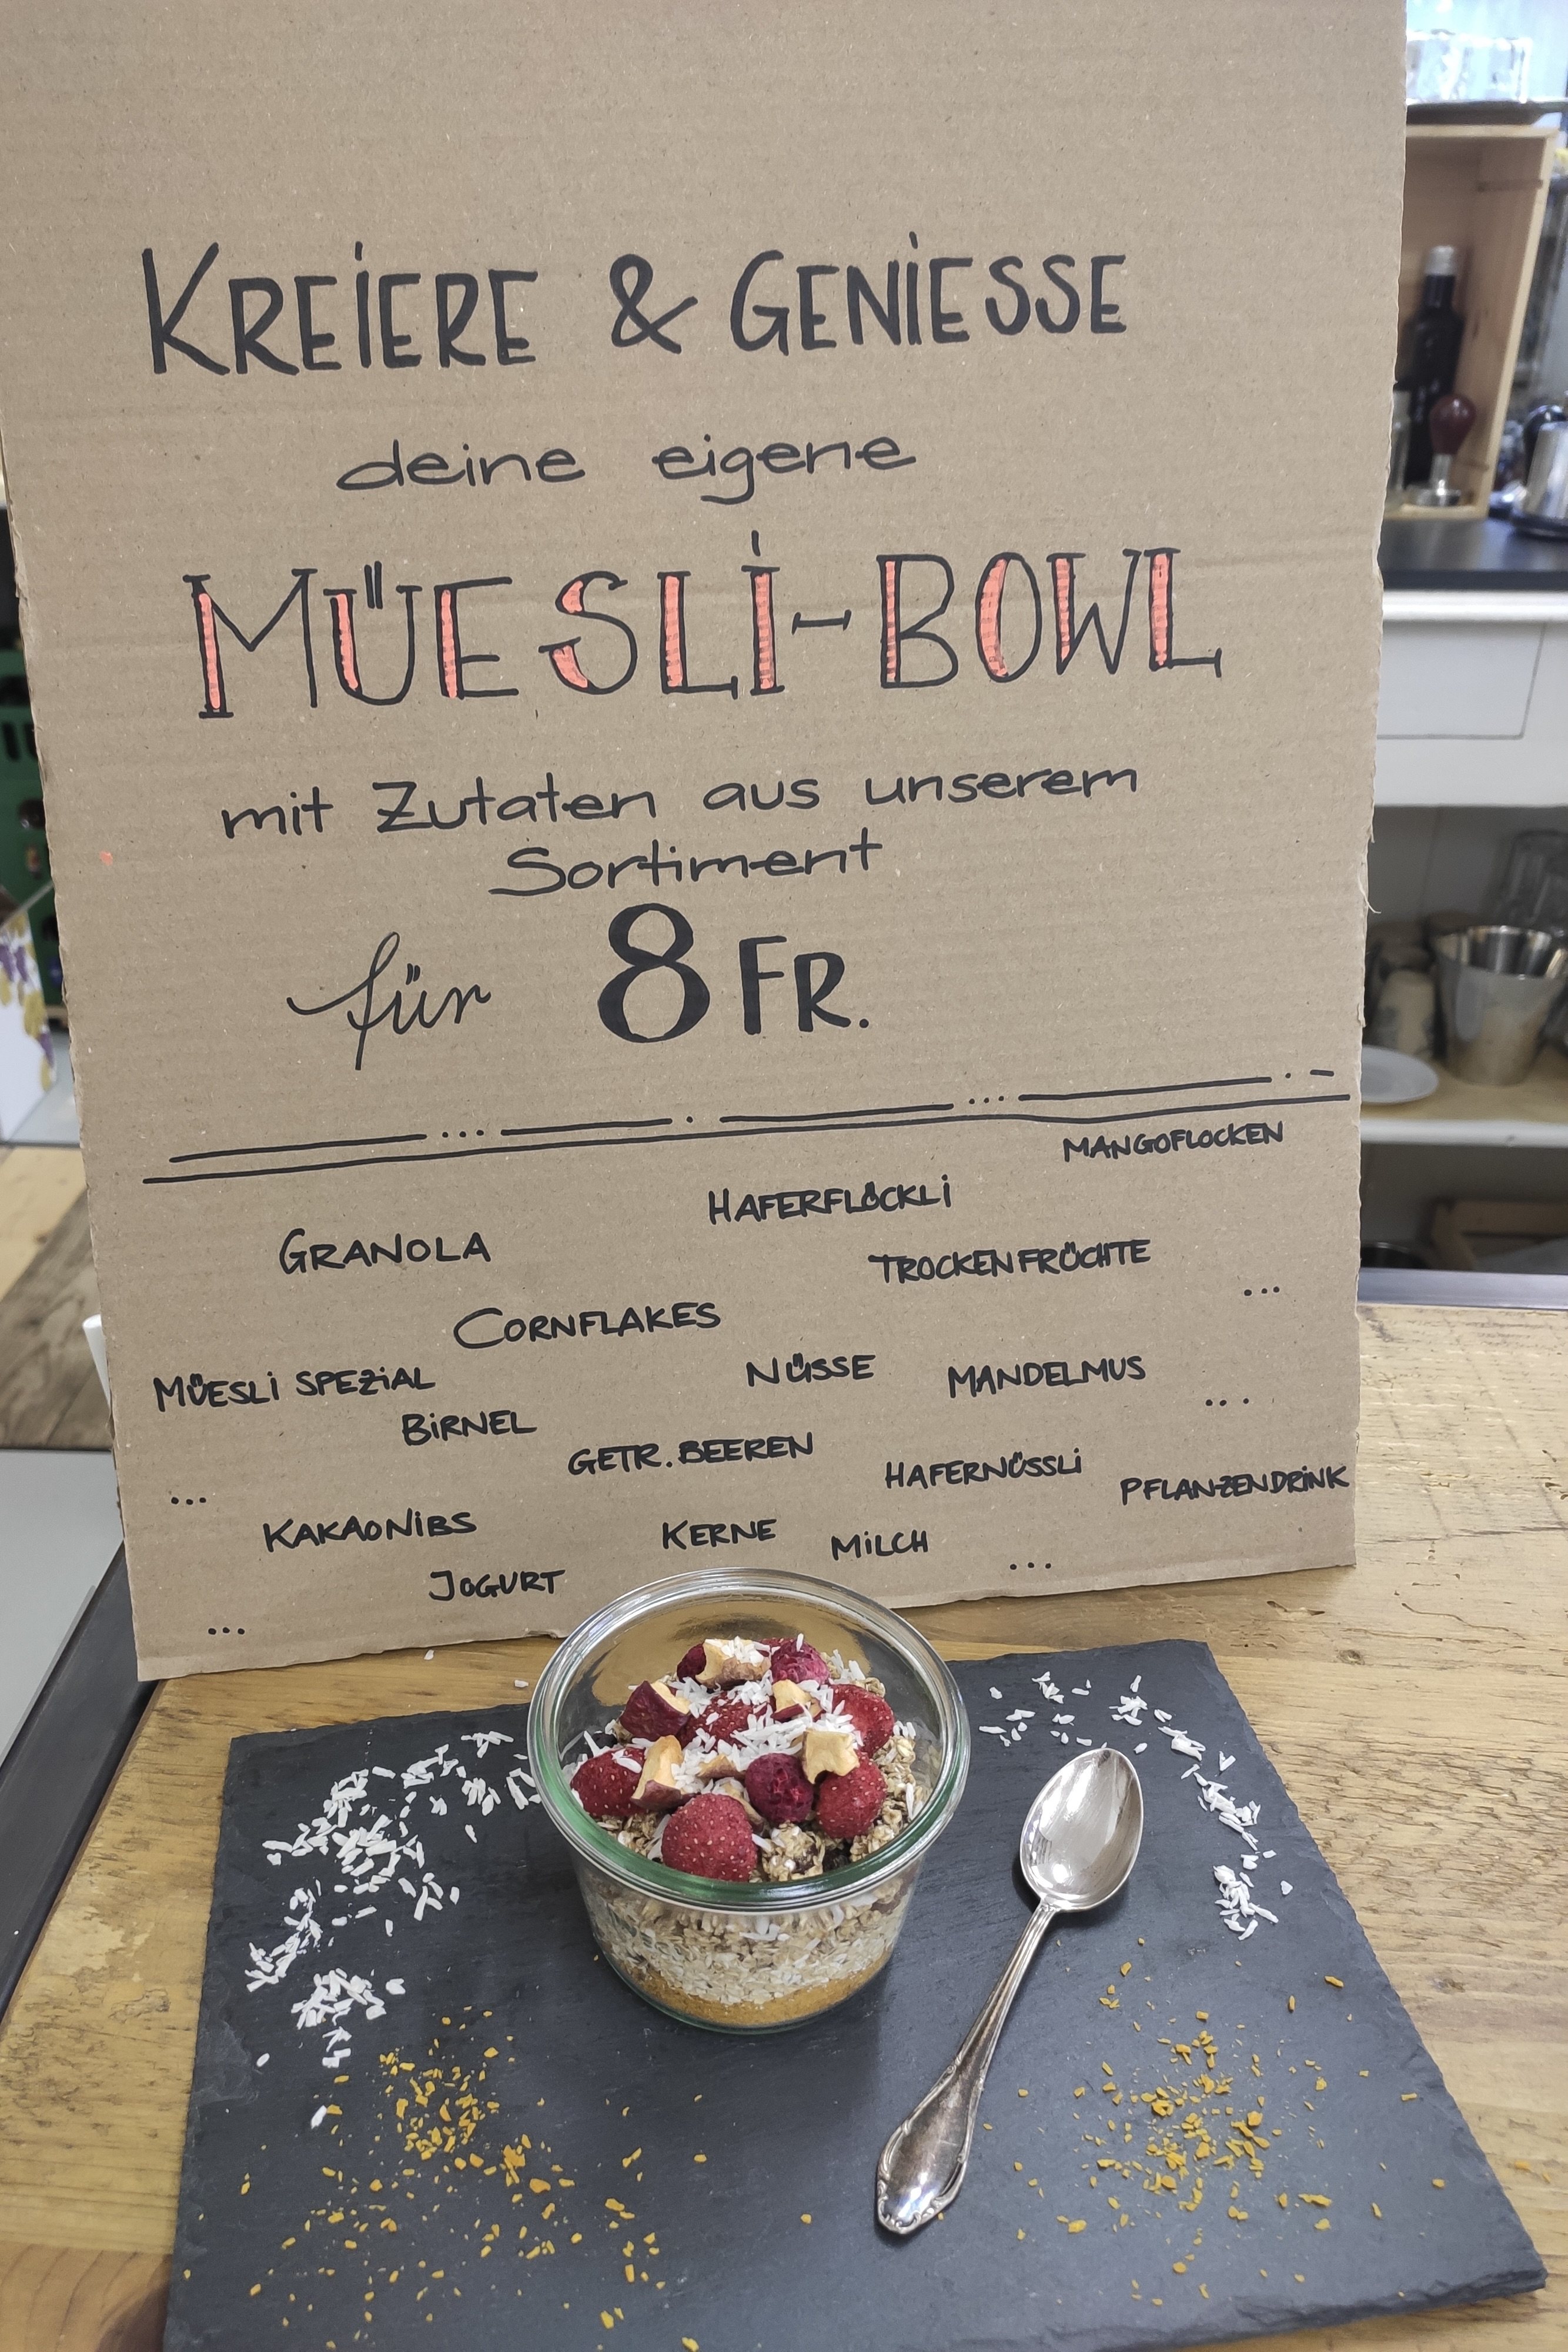 KREIERE & GENIESSE
deine eigene
MÜESLI-BOWL
mit Zutaten aus unserem
Sortiment
für 8 FR.
MANGOFLOCKEN
HAFERFLÖCKLI
GRANOLA
TROCKENFRÜCHTE
...
CORNFLAKES
MÜESLI SPEZIAL
NÜSSE
MANDELMUS
...
BIRNEL
GETR. BEEREN
HAFERNÜSSLI
PFLANZENDRINK
...
KAKAONIBS
KERNE
MILCH
...
JOGURT
...